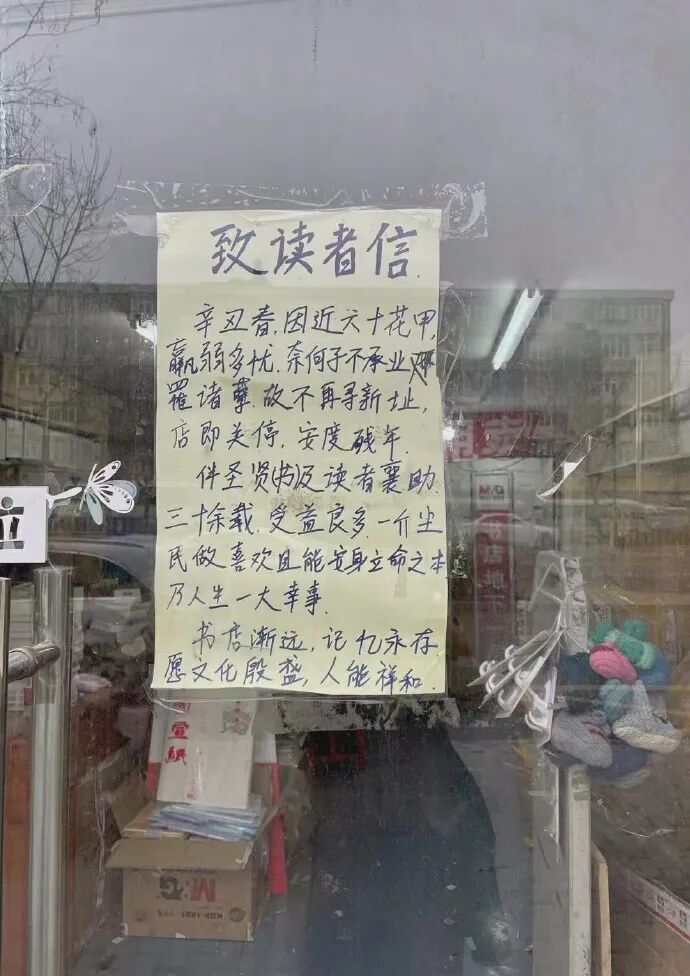 致读者信
辛丑春,因近六十花甲,
羸弱多忧.奈何子不承业
罹诸孽.故不再寻新址,
店即关停,安度残年.
伴圣贤(书)及读者襄助
三十余载.受益良多.一介尘
民做喜欢且能安身立命之本
乃人生一大幸事.
书店渐远,记忆永存
愿文化殷盛,人能祥和.
立
M&G
店地
宣紙
M&G